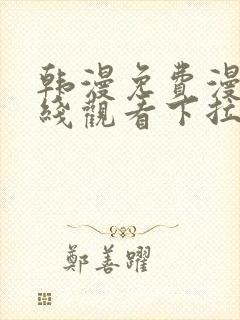 韩漫免費漫
綫觀看下拉
鄭善躍